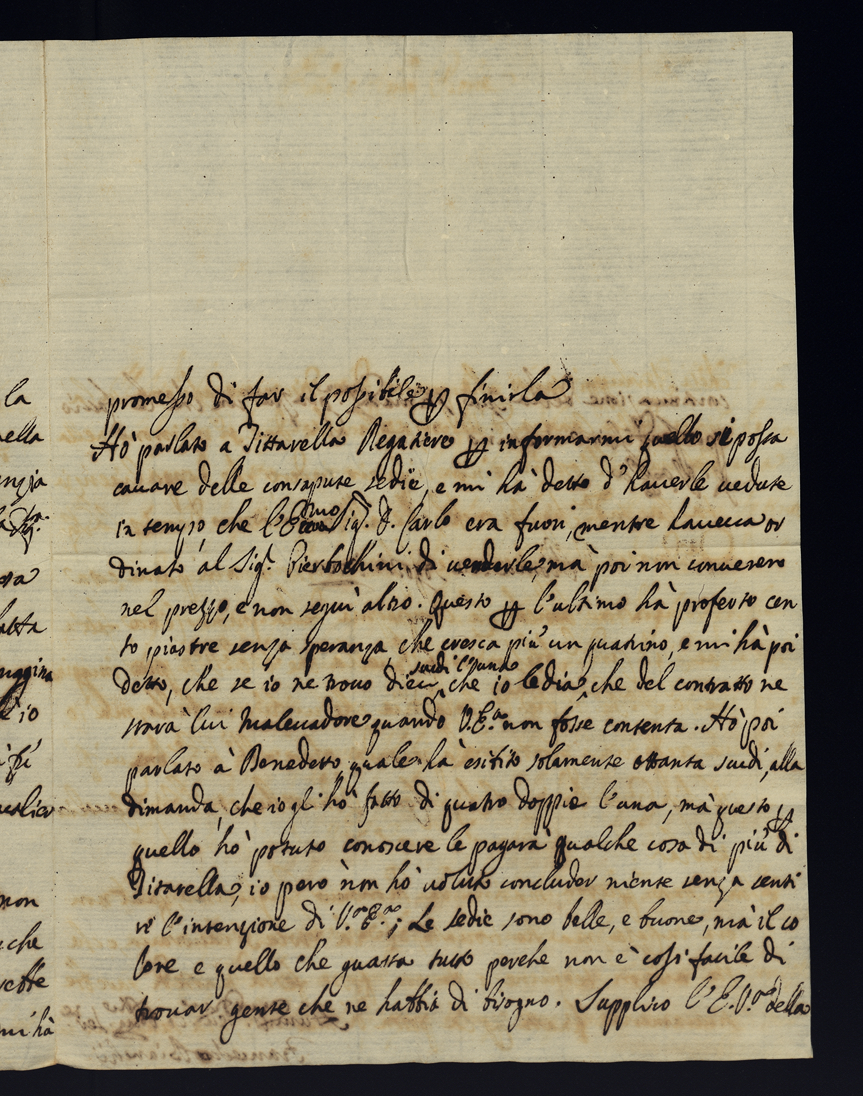 promesso di far il possibile ꝑ finirla
Hò parlato a Tittarella Regatiere ꝑ informarmi quello si possa
cavare delle consapute sedie, e mi hà detto d'haverle vedute
in tempo, che l'Ecc.mo Sig.r D. Carlo era fuori, mentre haveva or
dinato al Sig.r Pierbochini di venderle, mà poi non convenero
nel prezzo, e non seguì altro. Questo ꝑ l'ultimo hà proferto cen
to piastre senza speranza che cresca più un quatrino, e mi hà poi
detto, che se io ne trovo dieci scudi l'una, che io le dia, che del contratto ne
starà lui malevadore quando V.E.za non fosse contenta. Hò poi
parlato à Benedetto quale hà esibito solamente ottanta scudi, alla
dimanda, che io gli hò fatto di quatro doppie l'una, mà questo ꝑ
quello hò potuto conoscere le pagarà qualche cosa di più di
Titarella, io però non hò voluto concluder niente senza senti
re l'intenzione di V.ra E.za; Le sedie sono belle, e buone, mà il co
lore e quello che guasta tutto perche non è così facile di
trovar gente che ne habbia di bisogno. Supplico l'E.V.ra della
la
nella
à
fatta
io
non
che
mi hà